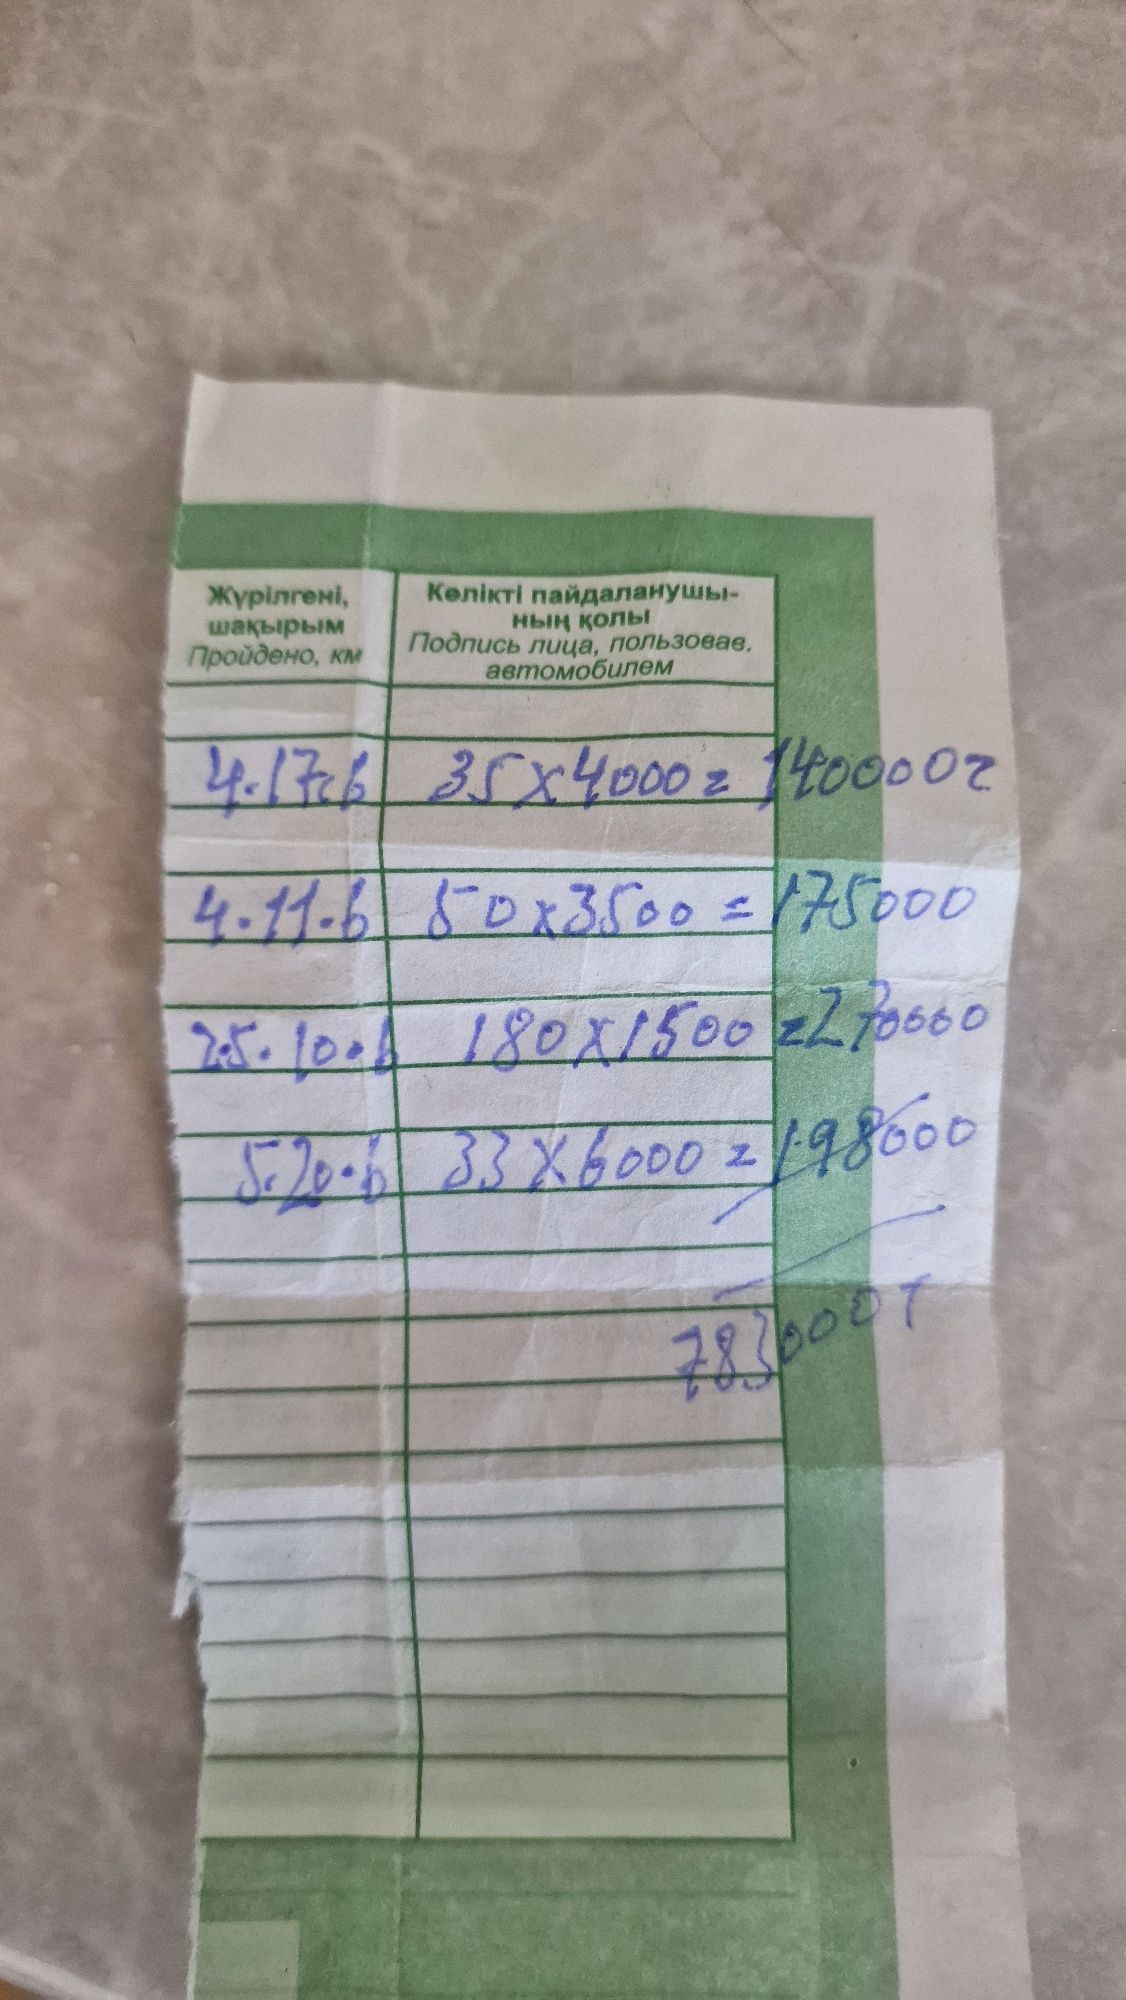 Жүрілгені,
шақырым
Пройдено, км
Көлікті пайдаланушы-
ның қолы
Подпись лица, пользовав.
автомобилем
4.17.6 35x4000=140000т
4.11.6 50x3500=175000
25.10.6 180x1500=270000
5.20.6 33x6000=198000
783000т